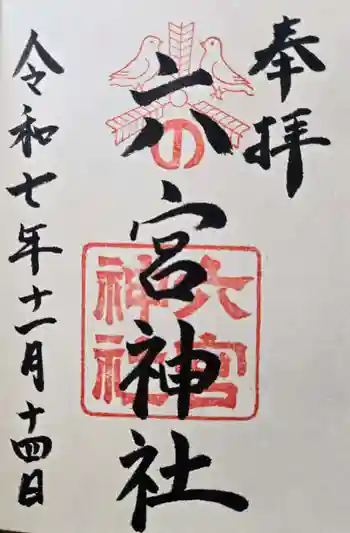 奉拝
六の宮神社
六宮神社
令和七年十一月十四日